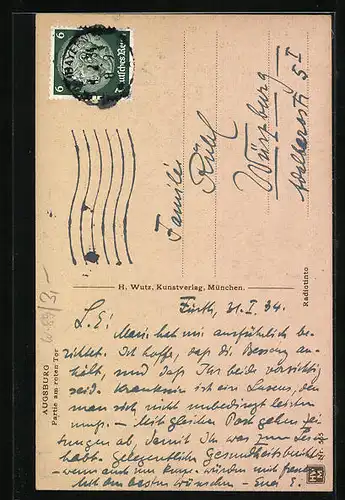 6 6
Deutsches Reich
Familie
Rühl
Würzburg
5 I
H. Wutz, Kunstverlag, München.
Radiotinto
AUGSBURG
Partie am roten Tor
3,-
Fürth, 21. I. 34.
L. E!
Marie hat mir ausführlich be-
richtet. Ich hoffe, daß die Besserung an-
hält, und daß Ihr beide vorsichtig
seid. Kranksein ist ein Luxus, den
man sich nicht unbedingt leisten
muß. — Mit gleicher Post gehen Zei-
tungen ab, damit Ihr was zum Lesen
habt. Gelegentliche Gesundheitsberichte
— wenn auch nur kurz — würden mich freuen
Mit den besten Wünschen — Euer E.
HWM